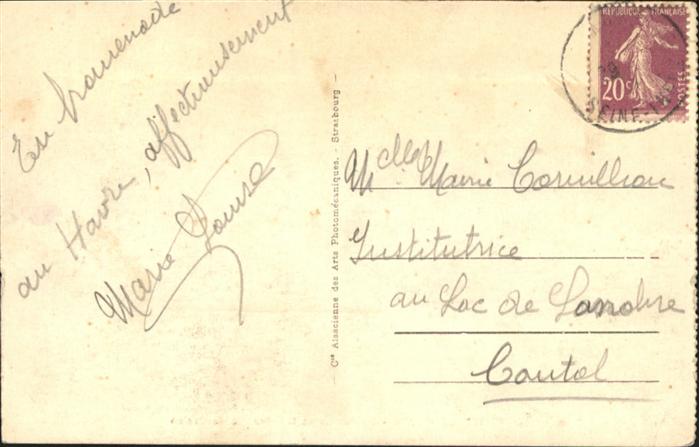 En promenade
au Havre, affectueusement
Marie Louise
Cie Alsacienne des Arts Photomécaniques. - Strasbourg
RÉPUBLIQUE FRANÇAISE
20c
POSTES
SEINE-INF
Melle Marie Cornilleau
Institutrice
au Lac de Lanobre
Cantal